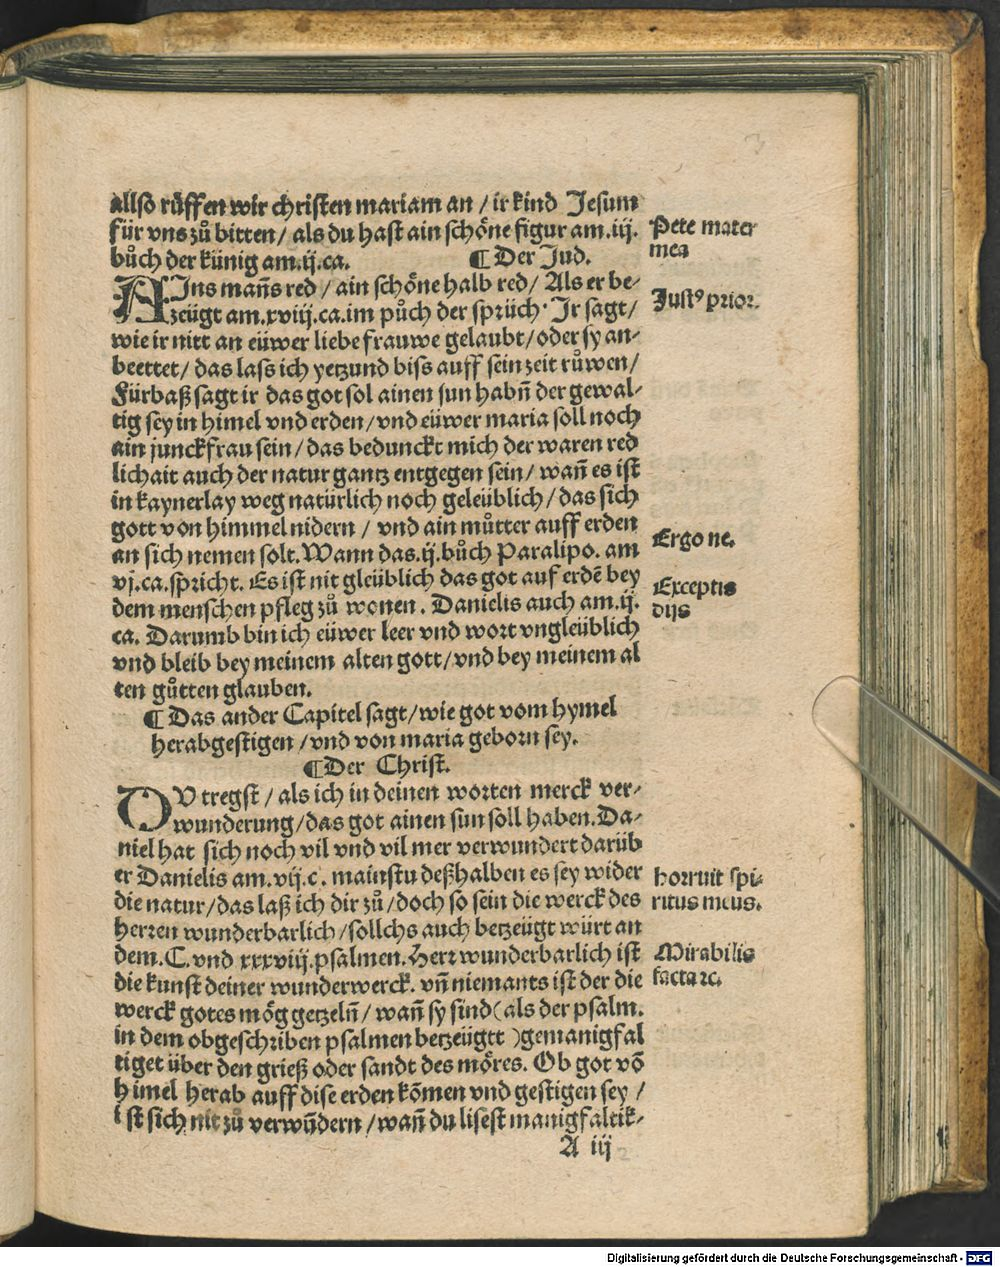 allso růffen wir christen mariam an / ir kind Jesum
für vns zů bitten / als du hast ain schöne figur am .iij.
bůch der künig am .ij. ca. ¶ Der Jud.
AJns mañs red / ain schöne halb red / Als er be⸗
zeügt am .xviij. ca. im půch der sprüch · Jr sagt /
wie ir nitt an eüwer liebe frauwe gelaubt / oder sy an⸗
beettet / das lass ich yetzund biss auff sein zeit růwen /
Fürbaß sagt ir das got sol ainen sun habñ der gewal⸗
tig sey in himel vnd erden / vnd eüwer maria soll noch
ain junckfrau sein / das bedunckt mich der waren red
lichait auch der natur gantz entgegen sein / wañ es ist
in kaynerlay weg natürlich noch geleüblich / das sich
gott von himmel nidern / vnd ain můtter auff erden
an sich nemen solt. Wann das .ij. bůch Paralipo. am
vj. ca. spricht. Es ist nit gleüblich das got auf erdē bey
dem menschen pfleg zů wonen. Danielis auch am .ij.
ca. Darumb bin ich eüwer leer vnd wort vngleüblich
vnd bleib bey meinem alten gott / vnd bey meinem al
ten gůtten glauben.
¶ Das ander Capitel sagt / wie got vom hymel
herabgestigen / vnd von maria geborn sey.
¶ Der Christ.
DV tregst / als ich in deinen worten merck ver⸗
wunderung / das got ainen sun soll haben. Da⸗
niel hat sich noch vil vnd vil mer verwundert darüb
er Danielis am .vij. c. mainstu deßhalben es sey wider
die natur / das laß ich dir zů / doch so sein die werck des
herren wunderbarlich / sollchs auch betzeügt würt an
dem .C. vnd xxxviij. psalmen. Herr wunderbarlich ist
die kunst deiner wunderwerck. vñ niemants ist der die
werck gotes mög getzelñ / wañ sy sind (als der psalm.
in dem obgeschriben psalmen betzeügtt) gemanigfal
tiget über den grieß oder sandt des möres. Ob got vō
himel herab auff dise erden kōmen vnd gestigen sey /
ist sich nit zů verwūdern / wañ du lisest manigfaltik⸗
A iij
Pete mater
mea
Justꝰ prior.
Ergo ne.
Exceptis
dijs
horruit spi⸗
ritus meus.
Mirabilis
facta rc.
Digitalisierung gefördert durch die Deutsche Forschungsgemeinschaft - DFG